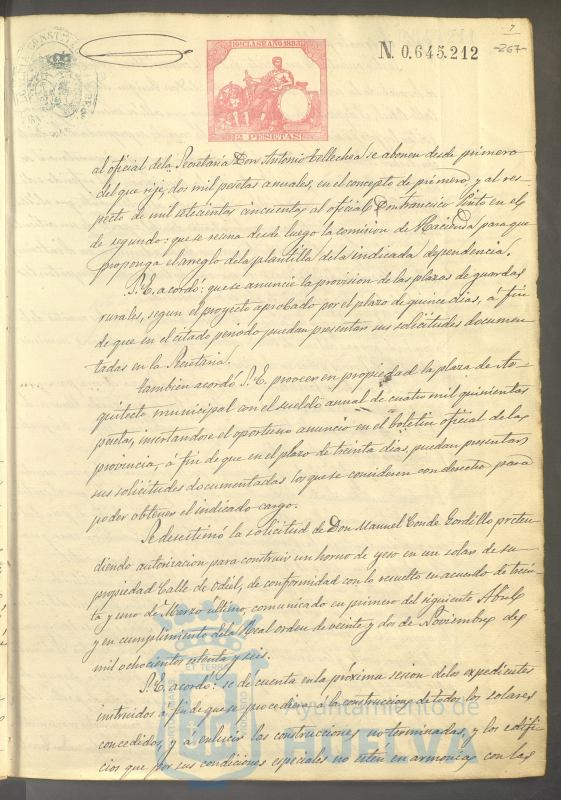 7
10ª CLASE AÑO 1883
N. 0.645.212
267
2 PESETAS
al oficial dela Secretaria Don Antonio Tellechea se abonen desde primero
del que rije, dos mil pesetas anuales, en el concepto de primero, y al res-
pecto de mil setecientas cincuenta, al oficial Don Francisco Pinto en el
de segundo: que se reuna desde luego la comision de Hacienda para que
proponga el arreglo de la plantilla de la indicada dependencia.
S. E. acordó: que se anuncie la provision de las plazas de guardas
rurales, segun el proyecto aprobado por el plazo de quince dias, á fin
de que en el citado periodo puedan presentar sus solicitudes documen
tadas en la Secretaria.
Tambien acordó S. E. proveer en propiedad la plaza de Ar-
quitecto municipal con el sueldo anual de cuatro mil quinientas
pesetas, insertandose el oportuno anuncio en el boletin oficial de la
provincia, á fin de que en el plazo de treinta dias, puedan presentar
sus solicitudes documentadas los que se consideren con derecho para
poder obtener el indicado cargo.
Se desestimó la solicitud de Don Manuel Conde Gordillo, preten
diendo autorizacion para construir un horno de yeso en un solar de su
propiedad Calle de Odiel, de conformidad con lo resuelto en acuerdo de trein-
ta y uno de Marzo último, comunicado en primero del siguiente Abril
y en cumplimiento dela Real orden de veinte y dos de Noviembre de
mil ochocientos setenta y seis.
S. E. acordó: se de cuenta en la próxima sesion delos expedientes
instruidos á fin de que se procediera á la construccion de todos los solares
concedidos, y a enlucir las construcciones no terminadas, y los edifi
cios que por sus condiciones especiales no estén en armonia con las
Ayuntamiento de
HUELVA